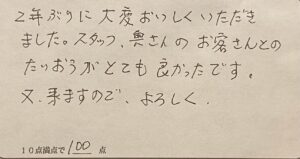 2年ぶりに大変おいしくいただき
ました。スタッフ、奥さんのお客さんとの
たいおうがとても良かったです。
又、来ますので、よろしく.
10点満点で100点